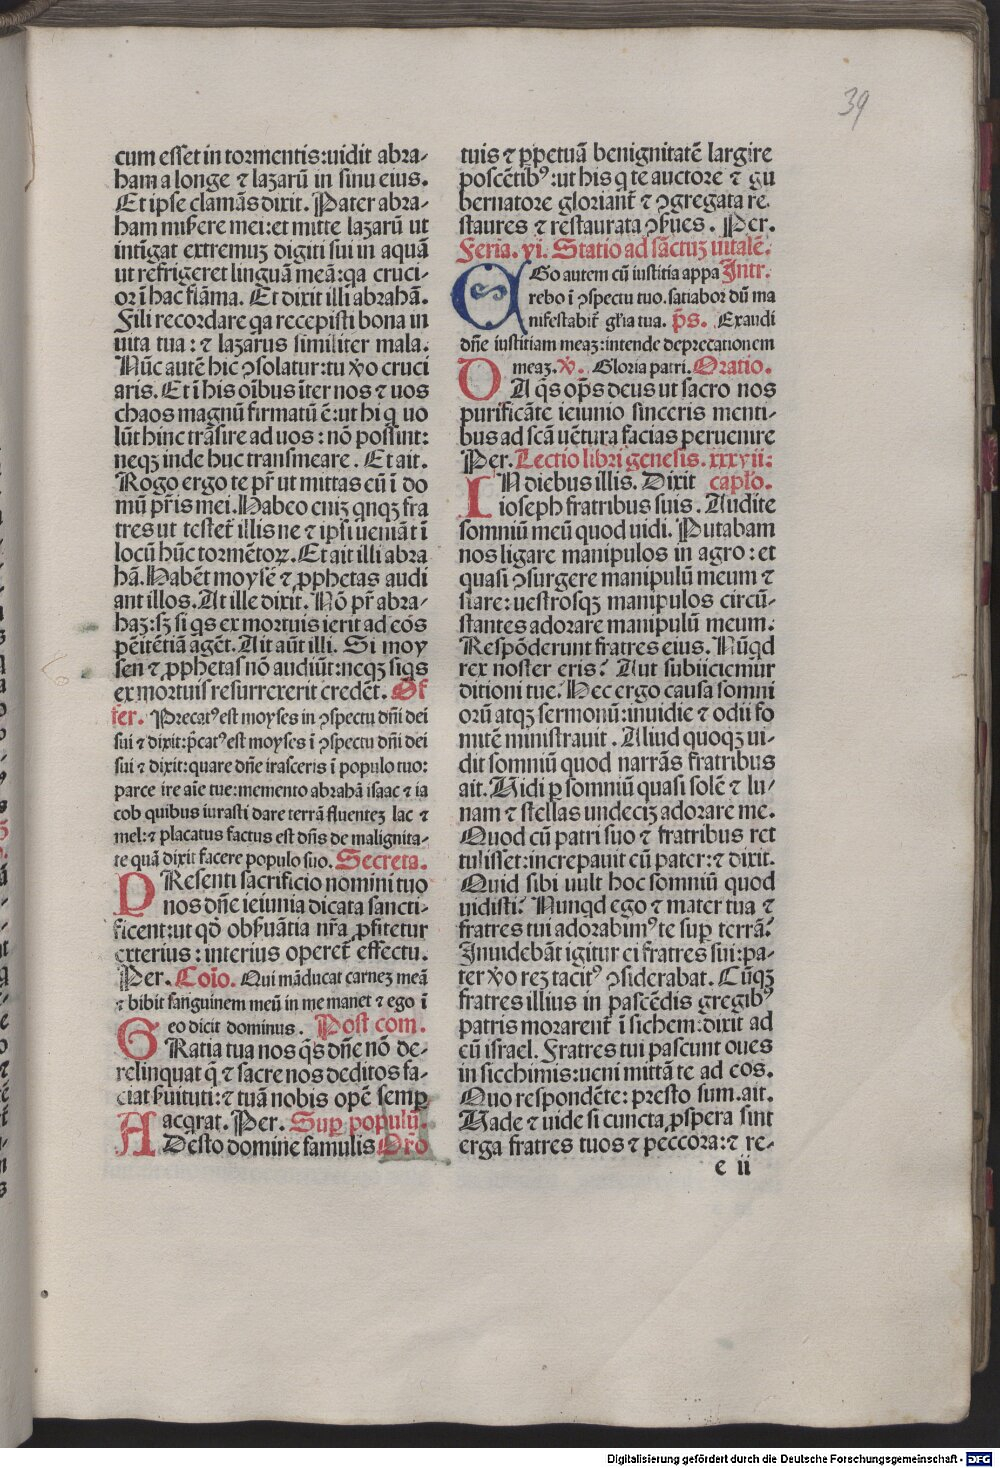 39
cum esset in tormentis: uidit abra-
ham a longe ⁊ lazarū in sinu eius.
Et ipse clamās dixit. Pater abra-
ham miserere mei: et mitte lazarū ut
intīgat extremuꝫ digiti sui in aquā
ut refrigeret linguā meā: qa cruci-
or ī hac flāma. Et dixit illi abrahā.
Fili recordare qa recepisti bona in
uita tua: ⁊ lazarus similiter mala.
Nūc autē hic ꝯsolatur: tu ꝟo cruci
aris. Et ī his oībus īter nos ⁊ uos
chaos magnū firmatū ē: ut hi q uo
lūt hinc trāsire ad uos: nō possint:
neqꝫ inde huc transmeare. Et ait.
Rogo ergo te pr̄ ut mittas eū ī do
mū pr̄is mei. Habeo eniꝫ qnqꝫ fra
tres ut testet̄ illis ne ⁊ ipsi ueniāt ī
locū hūc tormētoꝝ. Et ait illi abra
hā. Habēt moysē ⁊ ꝓphetas audi
ant illos. At ille dixit. Nō pr̄ abra-
haꝫ: sꝫ si qs ex mortuis ierit ad eōs
pēitētiā agēt. Ait aūt illi. Si moy
sen ⁊ ꝓphetas nō audiūt: neqꝫ siqs
ex mortuis resurrexerit credēt. Of
fer. Precatꝰ est moyses in ꝯspectu dn̄i dei
sui ⁊ dixit: p̄catꝰ est moyses ī ꝯspectu dn̄i dei
sui ⁊ dixit: quare dn̄e irasceris ī populo tuo:
parce ire aīe tue: memento abrahā isaac ⁊ ia
cob quibus iurasti dare terrā fluenteꝫ lac ⁊
mel: ⁊ placatus factus est dn̄s de malignita-
te quā dixit facere populo suo. Secreta.
PResenti sacrificio nomini tuo
nos dn̄e ieiunia dicata sancti-
ficent: ut qđ obẜuātia nr̄a ꝓfitetur
exterius: interius operet̄ effectu.
Per. Coīo. Qui māducat carneꝫ meā
⁊ bibit sanguinem meū in me manet ⁊ ego ī
eo dicit dominus. Post com.
GRatia tua nos q̄s dn̄e nō de-
relinquat q̄ ⁊ sacre nos deditos fa-
ciat ẜuituti: ⁊ tuā nobis opē semꝑ
acqrat. Per. Suꝑ populū.
ADesto domine famulis Oro
tuis ⁊ ꝑpetuā benignitatē largire
poscētibꝰ: ut his q te auctore ⁊ gu
bernatore gloriant̄ ⁊ ꝯgregata re
staures ⁊ restaurata ꝯẜues. Per.
Feria. vi. Statio ad sāctuꝫ uitalē.
EGo autem cū iustitia appa Intr.
rebo ī ꝯspectu tuo. satiabor dū ma
nifestabit̄ gl̄ia tua. p̄s. Exaudi
dn̄e iustitiam meaꝫ: intende deprecationem
meaꝫ. ꝟ. Gloria patri. Oratio.
DA q̄s op̄s deus ut sacro nos
purificāte ieiunio sinceris menti-
bus ad scā uētura facias peruenire
Per. Lectio libri genesis. xxxvii:
IN diebus illis. Dixit capl̄o.
ioseph fratribus suis. Audite
somniū meū quod uidi. Putabam
nos ligare manipulos in agro: et
quasi ꝯsurgere manipulū meum ⁊
stare: uestrosqꝫ manipulos circū-
stantes adorare manipulū meum.
Respōderunt fratres eius. Nūqd
rex noster eris? Aut subiiciemur
ditioni tue? Hec ergo causa somni
orū atqꝫ sermonū: inuidie ⁊ odii fo
mitē ministrauit. Aliud quoqꝫ ui-
dit somniū quod narrās fratribus
ait. Uidi ꝑ somniū quasi solē ⁊ lu-
nam ⁊ stellas undeciꝫ adorare me.
Quod cū patri suo ⁊ fratribus ret
tulisset: increpauit eū pater: ⁊ dixit.
Quid sibi uult hoc somniū quod
uidisti? Nunqd ego ⁊ mater tua ⁊
fratres tui adorabimꝰ te suꝑ terrā?
Inuidebāt igitur ei fratres sui: pa-
ter ꝟo reꝫ tacitꝰ ꝯsiderabat. Cūqꝫ
fratres illius in pascēdis gregibꝰ
patris morarent̄ ī sichem: dixit ad
eū israel. Fratres tui pascunt oues
in sicchimis: ueni mittā te ad eos.
Quo respondēte: presto sum. ait.
Uade ⁊ uide si cuncta ꝓspera sint
erga fratres tuos ⁊ peccora: ⁊ re-
e ii
Digitalisierung gefördert durch die Deutsche Forschungsgemeinschaft - DFG